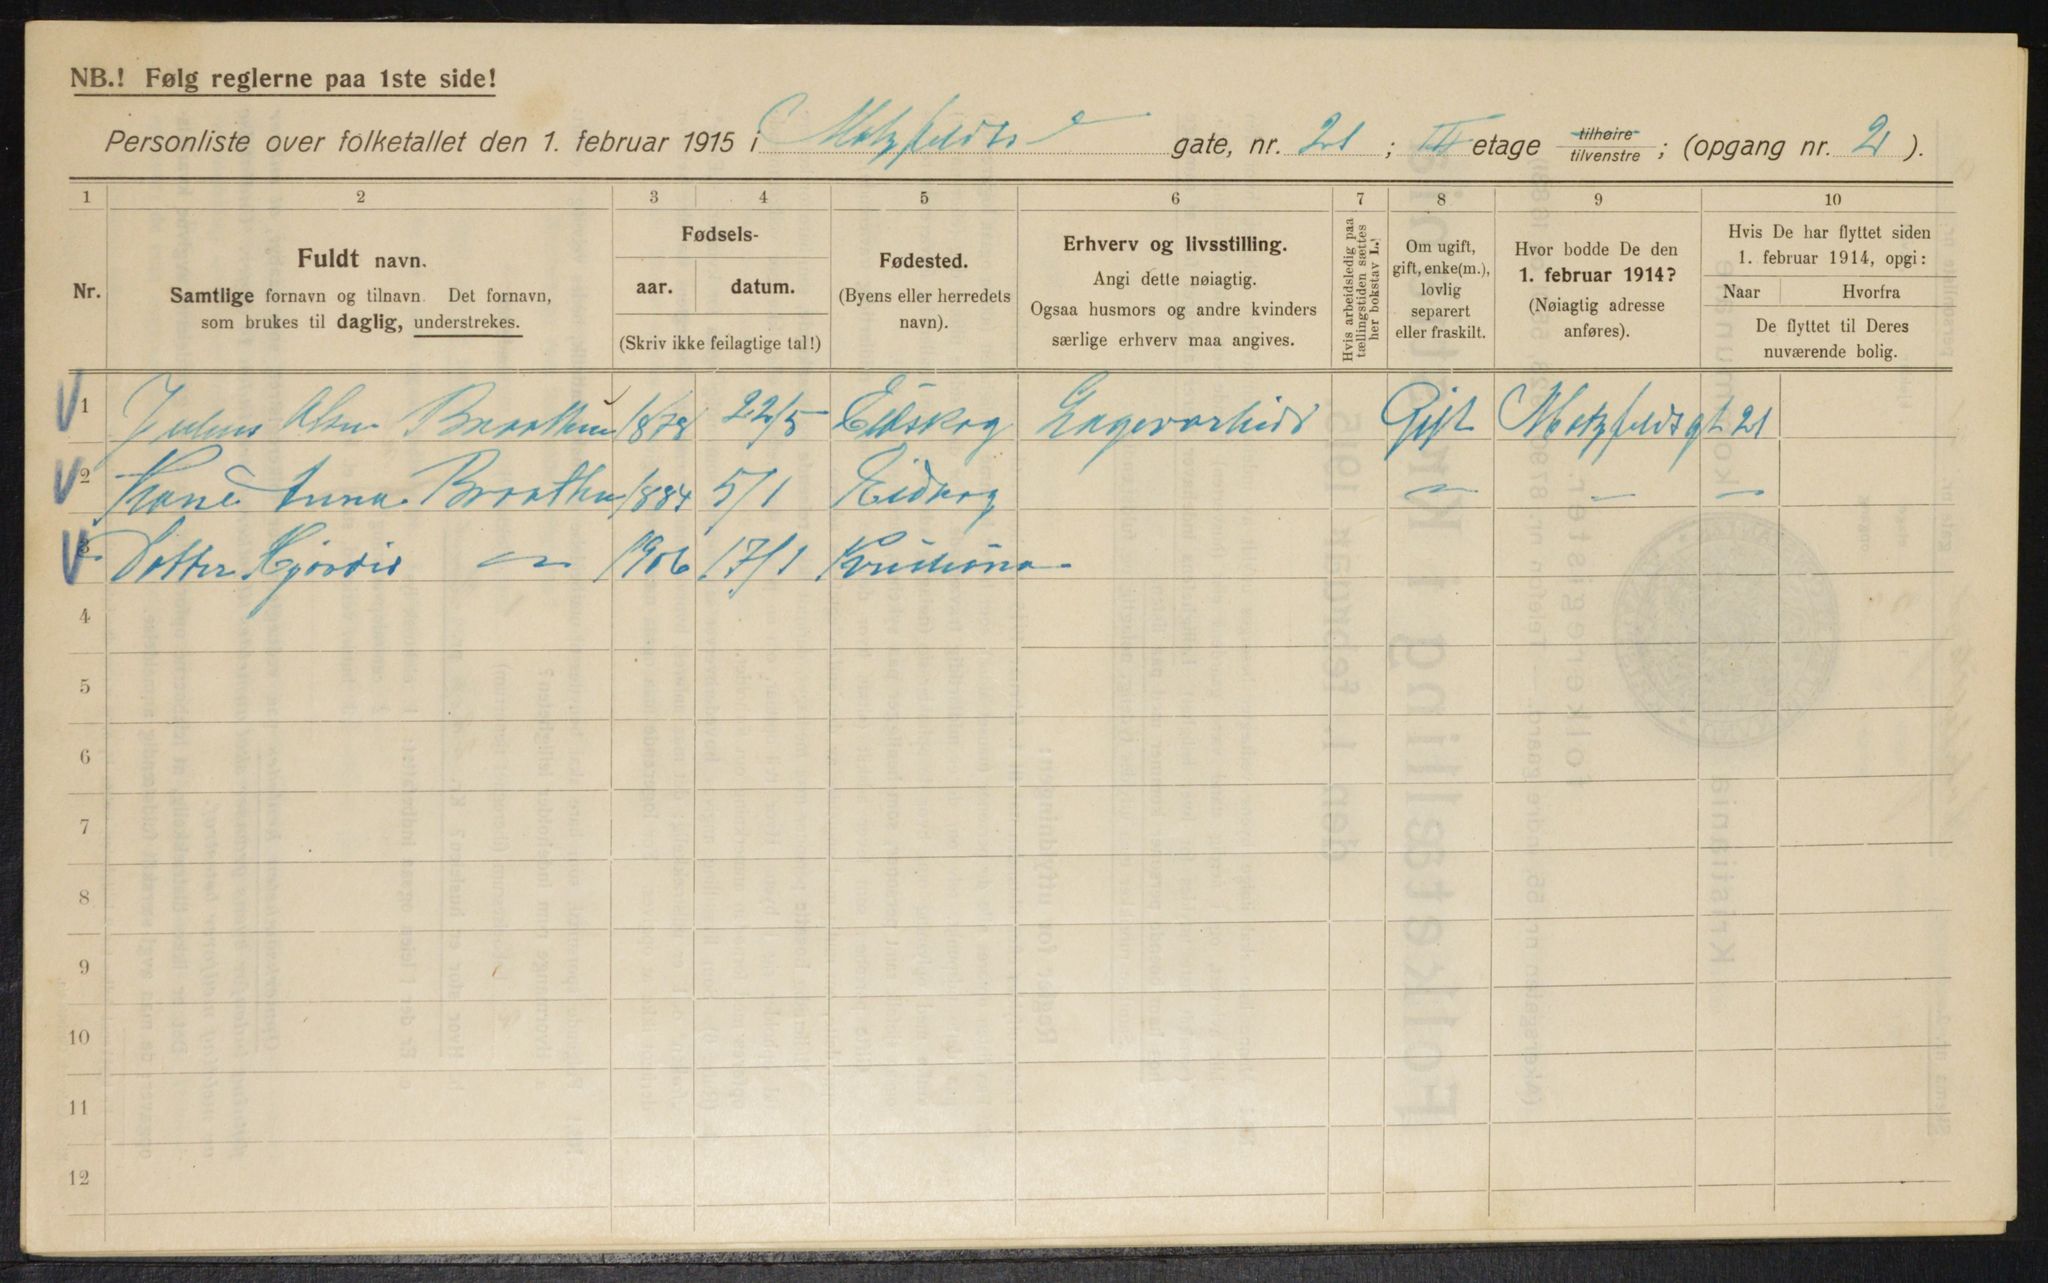 NB.! Følg reglerne paa 1ste side!
Personliste over folketallet den 1. februar 1915 i Motzfeldts gate, nr. 21 ; III etage tilhøire tilvenstre ; (opgang nr. 2 ).
1 2 3 4 5 6 7 8 9 10
Nr.
Fuldt navn.
Samtlige fornavn og tilnavn. Det fornavn,
som brukes til daglig, understrekes.
Fødsels-
aar. datum.
(Skriv ikke feilagtige tal!)
Fødested.
(Byens eller herredets
navn).
Erhverv og livsstilling.
Angi dette nøiagtig.
Ogsaa husmors og andre kvinders
særlige erhverv maa angives.
Hvis arbeidsledig paa
tællingstiden sættes
her bokstav L.!
Om ugift,
gift, enke(m.),
lovlig
separert
eller fraskilt.
Hvor bodde De den
1. februar 1914?
(Nøiagtig adresse
anføres).
Hvis De har flyttet siden
1. februar 1914, opgi:
Naar Hvorfra
De flyttet til Deres
nuværende bolig.
1 Julius Olsen Braathen 1878 22/5 Eidskog Lagerarbeid Gift Motzfeldsgt 21
2 Kone Anna Braathen 1884 5/1 Eidskog — — —
3 Datter Hjørdis — 1906 17/1 Kristiania
4
5
6
7
8
9
10
11
12